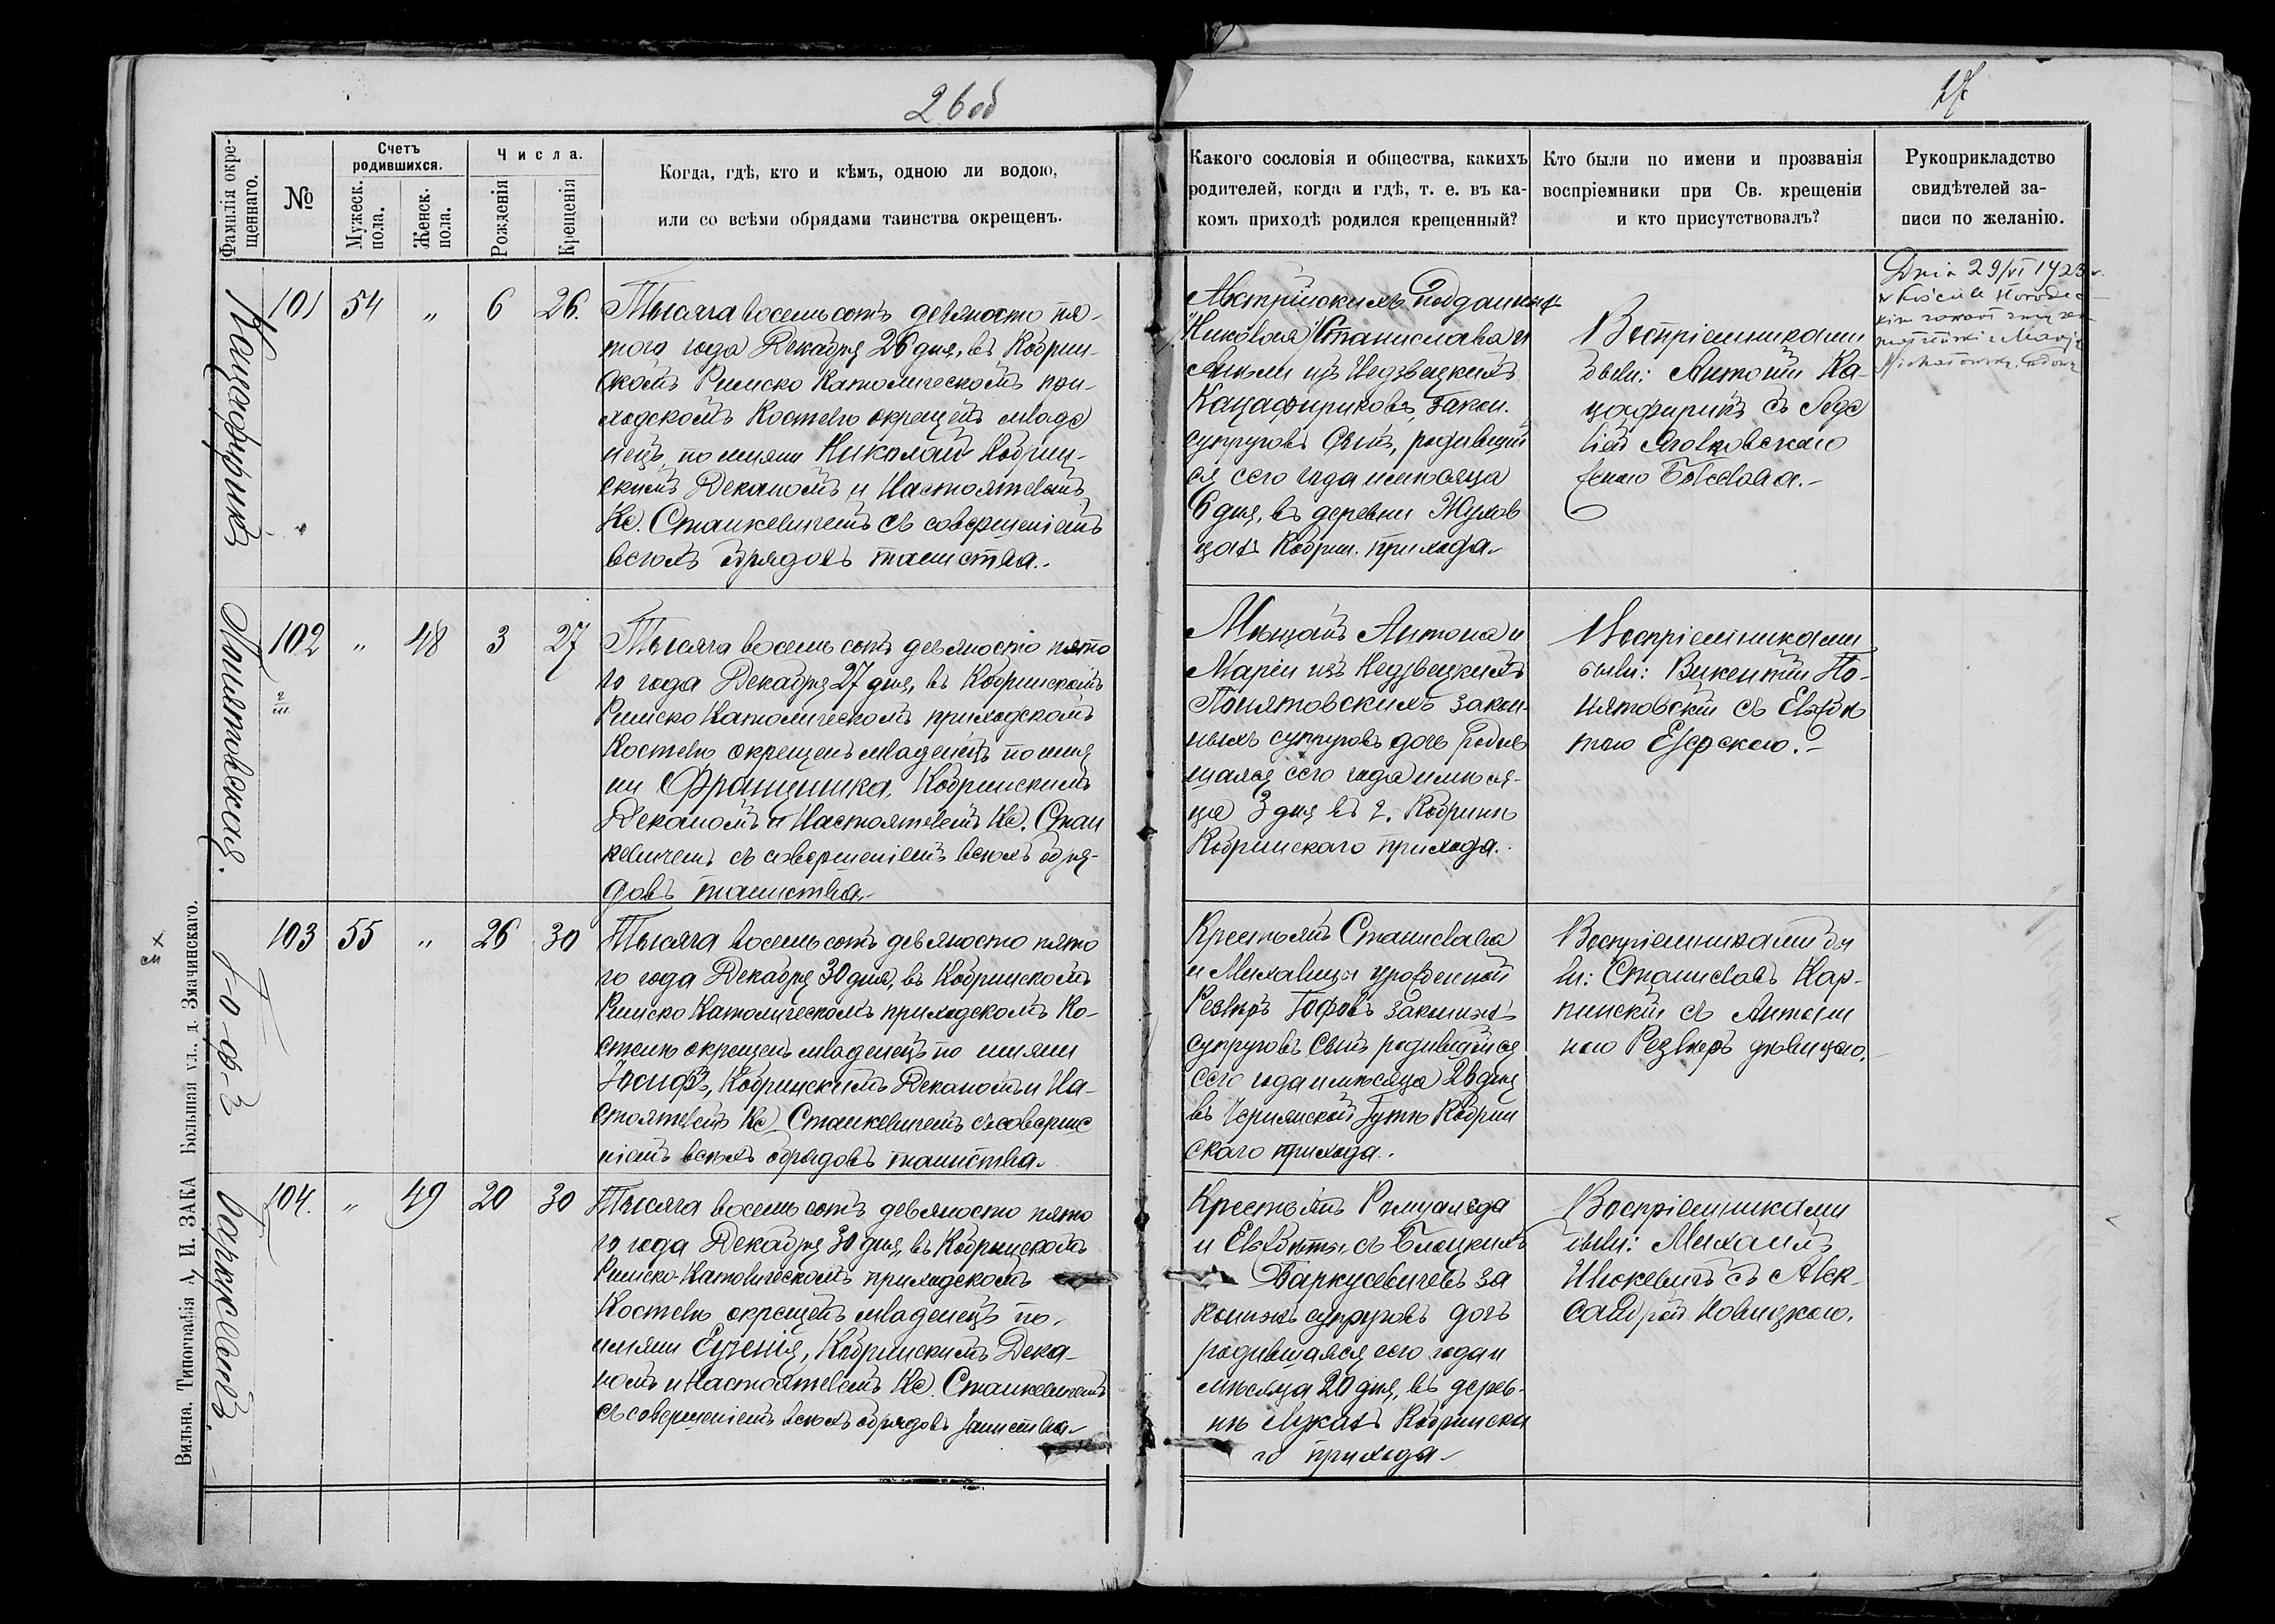 26 об
27
Фамилія окре-
щеннаго.
№
Счетъ
родившихся.
Мужеск.
пола.
Женск.
пола.
Числа.
Рожденія
Крещенія
Когда, гдѣ, кто и кѣмъ, одною ли водою,
или со всѣми обрядами таинства окрещенъ.
Какого сословія и общества, какихъ
родителей, когда и гдѣ, т. е. въ ка-
комъ приходѣ родился крещенный?
Кто были по имени и прозванія
воспріемники при Св. крещеніи
и кто присутствовалъ?
Рукоприкладство
свидѣтелей за-
писи по желанію.
Кацафирикъ
101 54 „ 6 26.
Тысяча восемьсотъ девяносто пя-
того года Декабря 26 дня, въ Кобрин-
скомъ Римско Католическомъ при-
ходскомъ Костелѣ окрещенъ младе
нецъ, по имени Николай Кобрин-
скимъ Деканомъ и Настоятелемъ
Кс. Станкевичемъ съ совершеніемъ
всѣхъ обрядовъ таинства.-
Австрійскихъ Подданныхъ
Николая Станислава и
изъ Недзвецкихъ
Кацафириковъ, закон.
супруговъ сынъ, родивший
ся сего года и мѣсяца
6 дня, въ деревни
Кобрин. прихода.
Воспріемниками
были: Антоній Ка-
цафирикъ съ
Dnia 29/VI 192
w Kościele
Понятовская.
102 „ 48 3 27
Тысяча восемьсотъ девяносто пято
го года Декабря 27 дня, въ Кобринскомъ
Римско Католическомъ приходскомъ
Костелѣ окрещенъ младенецъ по име
ни Францишка, Кобринскимъ
Деканомъ и Настоятелемъ Кс. Стан
кевичемъ съ совершеніемъ всѣхъ обря-
довъ таинства.-
Мѣщанъ Антона и
Маріи изъ Недзвецкихъ
Понятовскихъ закон-
ныхъ супруговъ дочь родив
шаяся сего года и мѣся-
ца 3 дня въ г. Кобринѣ
Кобринскаго прихода.
Воспріемниками
были: Викентій По-
нятовскій съ Елизаве
тою
Гофъ
103 55 „ 26 30
Тысяча восемьсотъ девяносто пято
го года Декабря 30 дня, въ Кобринскомъ
Римско Католическомъ приходскомъ Ко-
стелѣ окрещенъ младенецъ по имени
Іосифъ, Кобринскимъ Деканомъ и На-
стоятелемъ Кс. Станкевичемъ съ соверше
ніемъ всѣхъ обрядовъ таинства.
Крестьянъ Станислава
и Михалины урожденной
Резлеръ Гофовъ законныхъ
супруговъ сынъ родившійся
сего года и мѣсяца 26 дня
въ Чернянской Гутѣ Кобрин
скаго прихода.
Воспріемниками бы
ли: Станиславъ Кар-
пинскій съ Антони
ною Резлеръ дѣвицею.
Баркусевичъ.
104. „ 49 20 30
Тысяча восемьсотъ девяносто пято
го года Декабря 30 дня, въ Кобринскомъ
Римско-Католическомъ приходскомъ
Костелѣ окрещенъ младенецъ по
имени Евгенія, Кобринскимъ Дека-
номъ и Настоятелемъ Кс. Станкевичемъ
съ совершеніемъ всѣхъ обрядовъ таинства.
Крестьянъ Ромуальда
и Елизаветы съ
Баркусевичевъ за
конныхъ супруговъ дочь
родившаяся сего года и
мѣсяца 20 дня, въ дерев-
нѣ Лукахъ Кобринска
го прихода.
Воспріемниками
были: Михаилъ
съ Алек-
сандрой Новицкою.
Вильна, Типографія А. И. ЗАКА Большая ул., д. Значинскаго.